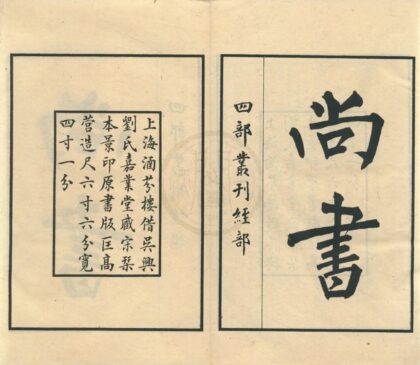 尚書
四部叢刊經部
上海涵芬樓借吳興
劉氏嘉業堂臧宋栞
本景印原書版匡高
營造尺六寸六分寬
四寸一分